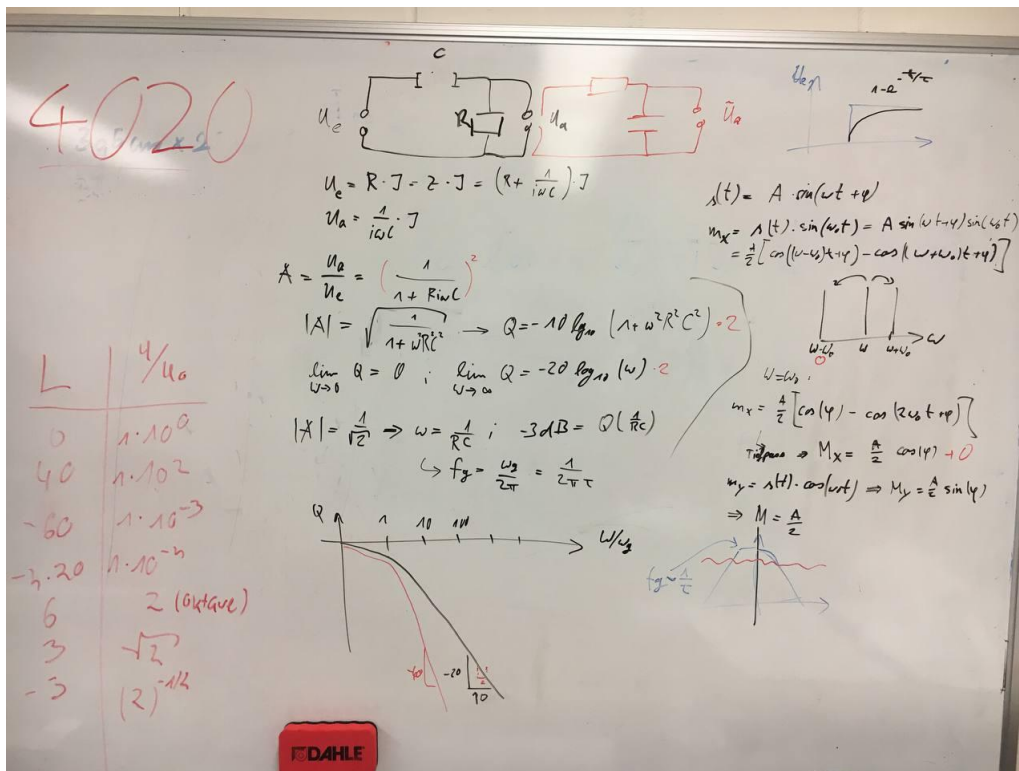 4020
L | U/U₀
0 | 1·10⁰
40 | 1·10²
-60 | 1·10⁻³
-n·20 | 1·10⁻ⁿ
6 | 2 (Oktave)
3 | √2
-3 | (2)^(-1/2)
C
U_e R U_a Ũ_a
U_e = R·I = Z·I = (R + 1/(iωC))·I
U_a = 1/(iωC)·I
A = U_a/U_e = (1/(1 + RiωC))²
|A| = √(1/(1 + ω²R²C²)) → Q = -10 log₁₀ (1 + ω²R²C²)·2
lim ω→0 Q = 0 ; lim ω→∞ Q = -20 log₁₀ (ω)·2
|A| = 1/√2 ⇒ ω = 1/(RC) ; -3dB = Q(1/(RC))
↳ f_g = ω_g/2π = 1/(2πτ)
Q 1 10 100 ω/ω_g
-40 -20 10
DAHLE
1-e^(-t/τ)
s(t) = A·sin(ωt+φ)
m_x = s(t)·sin(ω₀t) = A sin(ωt+φ) sin(ω₀t)
= A/2 [cos((ω-ω₀)t+φ) - cos((ω+ω₀)t+φ)]
ω-ω₀ ω ω+ω₀ ω
0
ω=ω₀ :
m_x = A/2 [cos(φ) - cos(2ω₀t+φ)]
Tiefpass ⇒ M_x = A/2 cos(φ) + 0
m_y = s(t)·cos(ω₀t) ⇒ M_y = A/2 sin(φ)
⇒ M = A/2
f_g ~ 1/τ